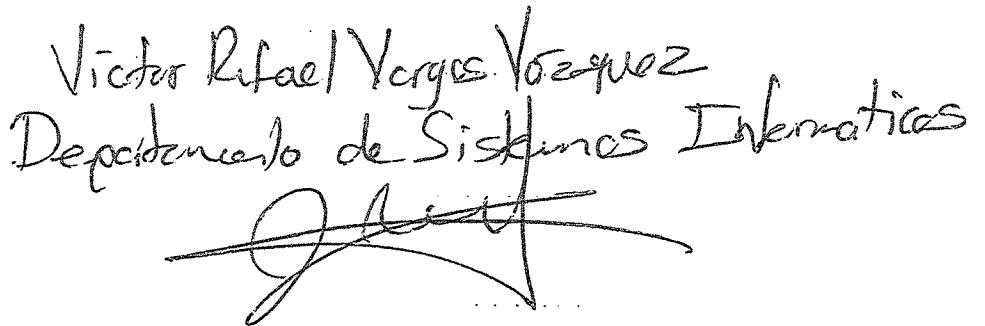 Victor Rafael Vargas Vázquez
Departamento de Sistemas Informaticos